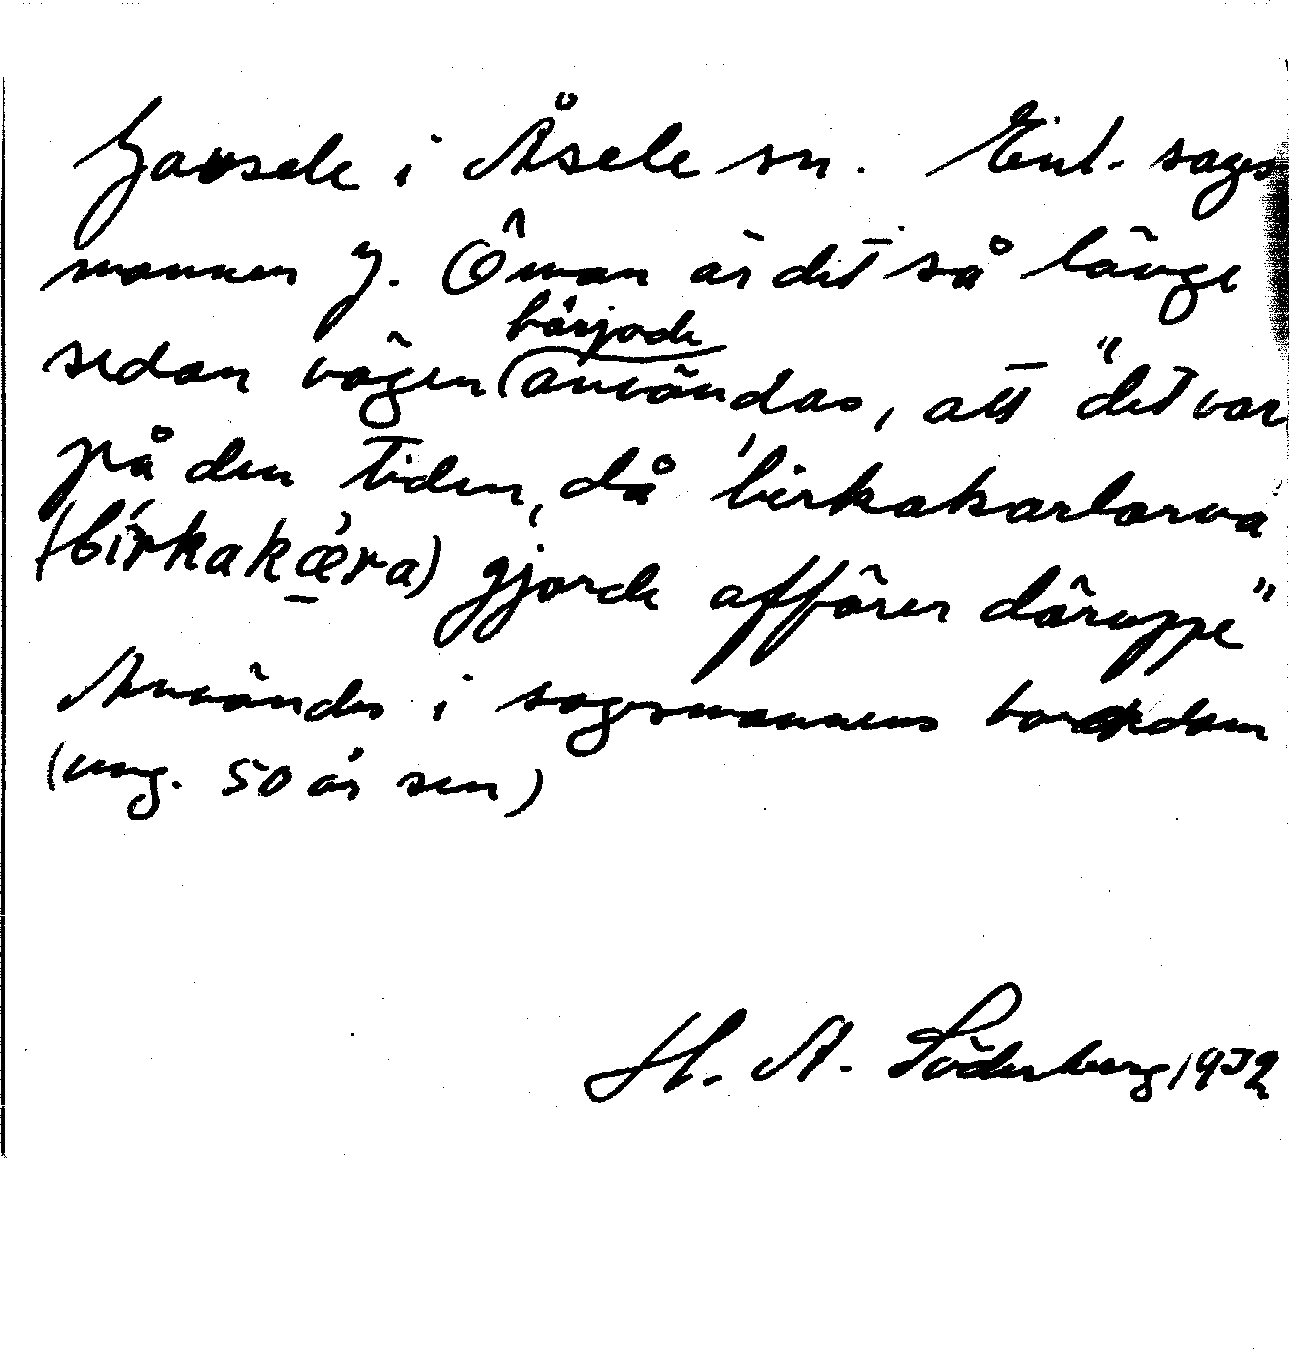 Gavsele i Åsele sn. Enl. sages
mannen J. Öman är det så länge
började
sedan vägen användas, att "det var
på den tiden, då 'birkakarlarna
(bírkakǽra) gjorde affärer däruppe"
Användes i sagesmannens barndom
(ung. 50 år sen)
H. A. Söderberg 1932